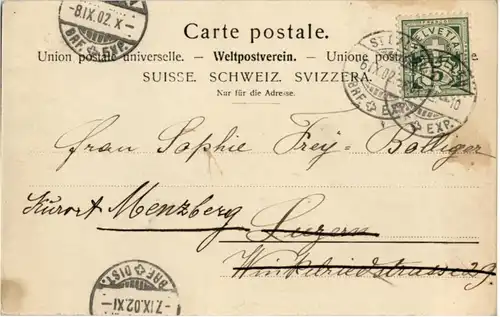 -8.IX.02.X-
BRF. EXP.
Carte postale.
Union postale universelle. — Weltpostverein. — Unione
SUISSE. SCHWEIZ. SVIZZERA.
Nur für die Adresse.
HELVETIA
BRF. EXP.
Frau Sophie Frey-Bolliger
Kurort Menzberg Luzern
Winkelriedstrasse 29.
BRF. DIST.
-7.IX.02.XI-